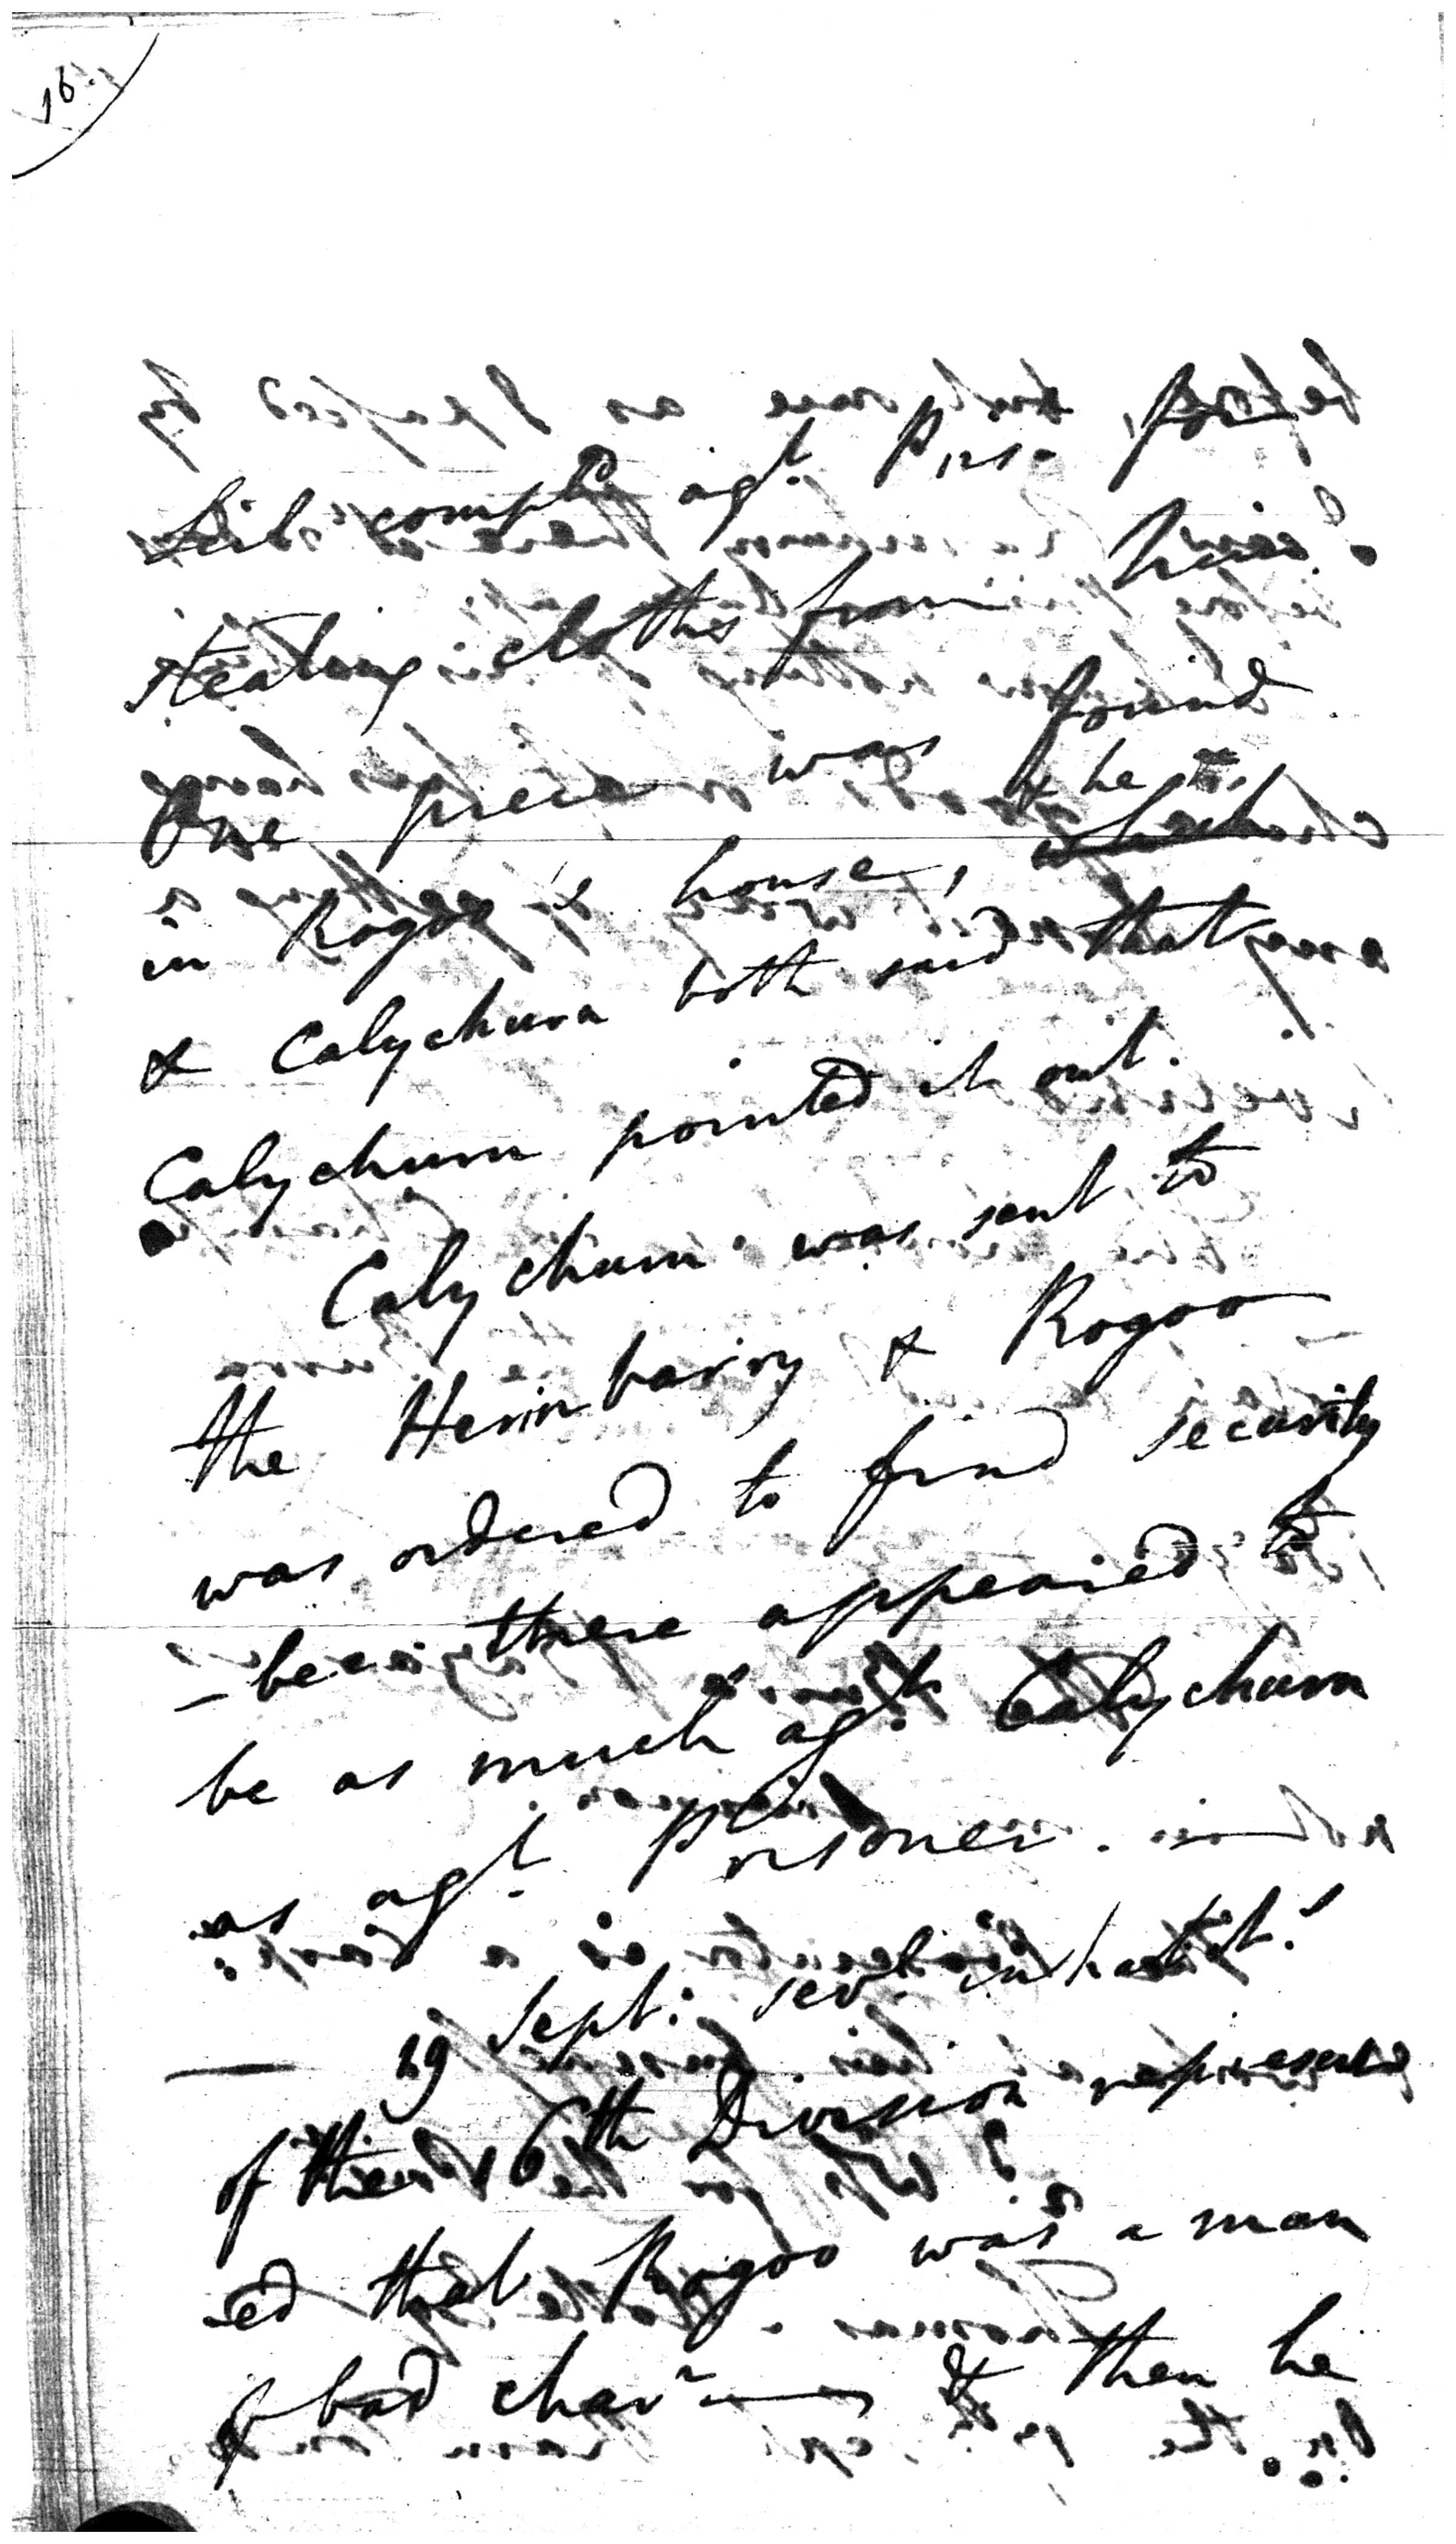 16.
Sib compld agt. Prisr. for
stealing cloths from him.
One piece was found
& he
in Rogoo's house, which
& Calychurn both said that
Calychurn pointed it out.
Calychurn was sent to
the Herinbarry & Rogoo
was ordered to find security
- bec. there appeared to
be as much agt. Calychurn
as agt. Prisoner.
— 29 Sept. sevl. inhabitts.
of the 6th Division represent
ed that Rogoo was a man
of bad charr & then he